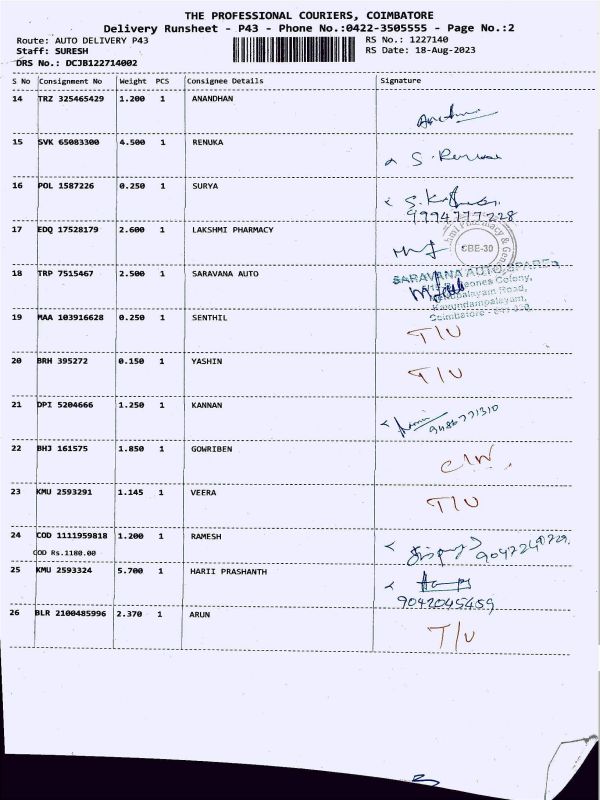 THE PROFESSIONAL COURIERS, COIMBATORE
Delivery Runsheet - P43 - Phone No.:0422-3505555 - Page No.:2
Route: AUTO DELIVERY P43 RS No.: 1227140
Staff: SURESH RS Date: 18-Aug-2023
DRS No.: DCJB122714002
S No Consignment No Weight PCS Consignee Details Signature
14 TRZ 325465429 1.200 1 ANANDHAN
15 SVK 65083300 4.500 1 RENUKA S. Renuka
16 POL 1587226 0.250 1 SURYA
9994777228
17 EDQ 17528179 2.600 1 LAKSHMI PHARMACY CBE-30
18 TRP 7515467 2.500 1 SARAVANA AUTO SARAVANA AUTO SPARES
Colony,
Road,
Kavundampalayam,
Coimbatore
19 MAA 103916628 0.250 1 SENTHIL T/U
20 BRH 395272 0.150 1 YASHIN T/U
21 DPI 5204666 1.250 1 KANNAN 9486771310
22 BHJ 161575 1.850 1 GOWRIBEN C/W
23 KMU 2593291 1.145 1 VEERA T/U
24 COD 1111959818 1.200 1 RAMESH
COD Rs.1180.00
25 KMU 2593324 5.700 1 HARII PRASHANTH
9042045459
26 BLR 2100485996 2.370 1 ARUN T/U